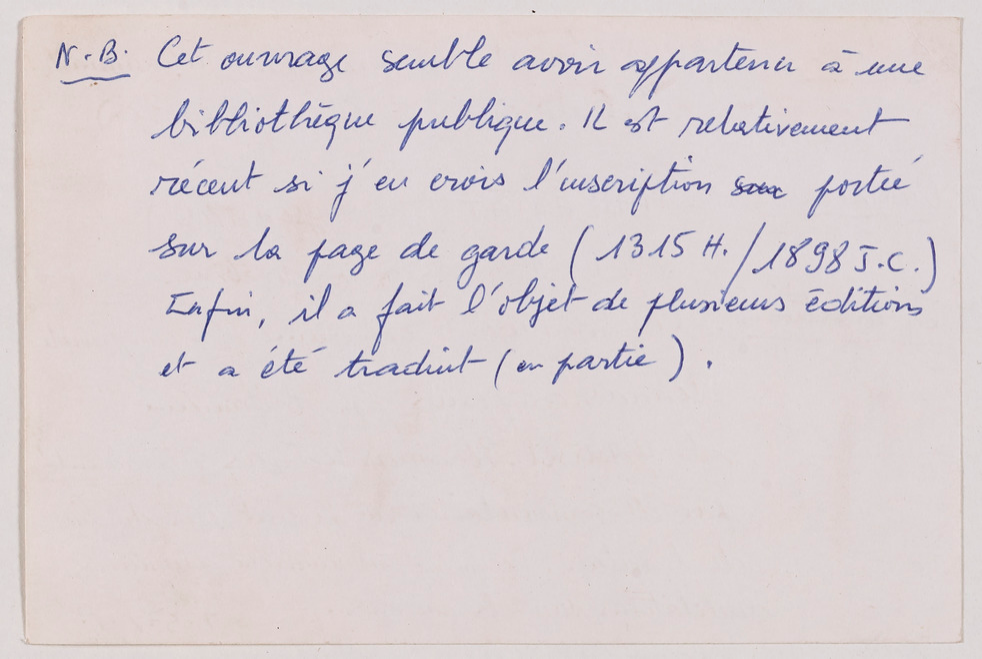 N.B. Cet ouvrage semble avoir appartenu à une
bibliothèque publique. Il est relativement
récent si j'en crois l'inscription portée
sur la page de garde (1315 H./1898 J.C.)
Enfin, il a fait l'objet de plusieurs éditions
et a été traduit (en partie).